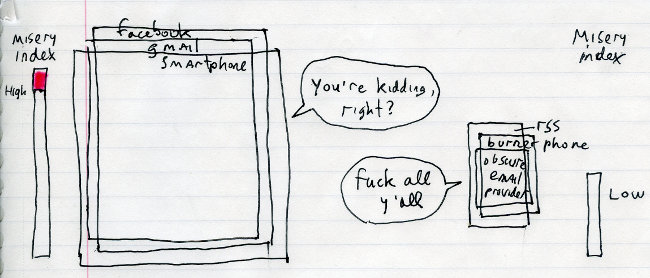 Misery
index
High
facebook
gmail
smartphone
You're kidding,
right?
Fuck all
y'all
rss
burner phone
obscure
email
provider
Misery
index
Low